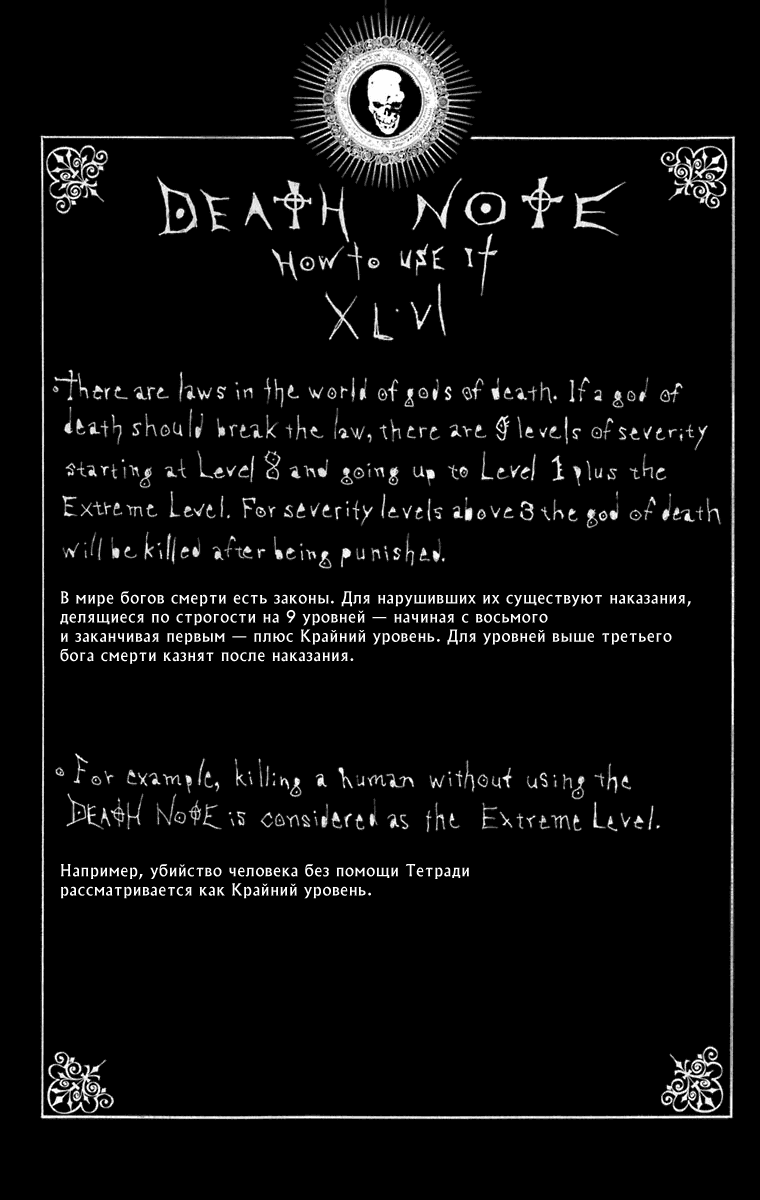 DEATH NOTE
HOW TO USE IT
XLVI
◦There are laws in the world of gods of death. If a god of
death should break the law, there are 9 levels of severity
starting at Level 8 and going up to Level 1 plus the
Extreme Level. For severity levels above 3 the god of death
will be killed after being punished.
В мире богов смерти есть законы. Для нарушивших их существуют наказания,
делящиеся по строгости на 9 уровней — начиная с восьмого
и заканчивая первым — плюс Крайний уровень. Для уровней выше третьего
бога смерти казнят после наказания.
◦For example, killing a human without using the
DEATH NOTE is considered as the Extreme Level.
Например, убийство человека без помощи Тетради
рассматривается как Крайний уровень.